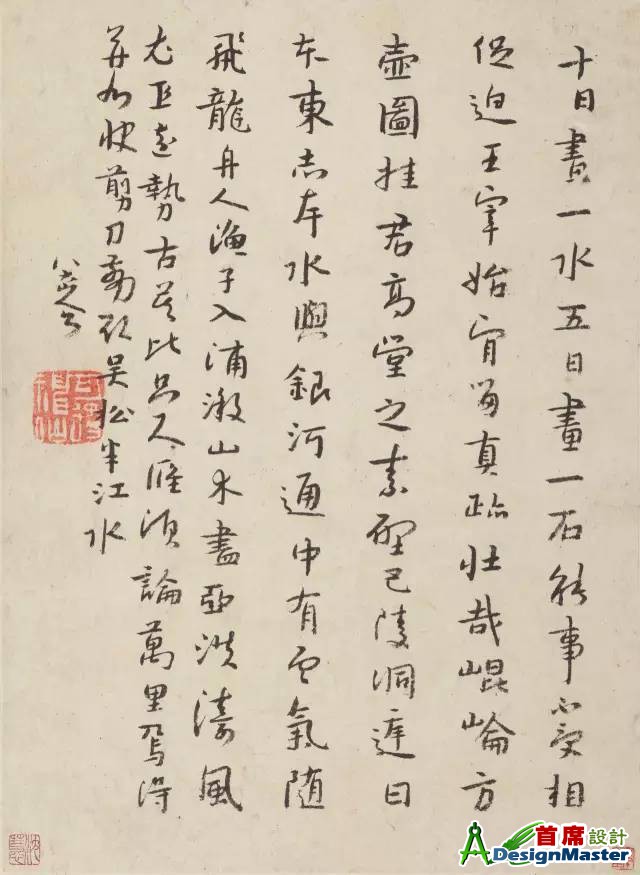 十日畫一水五日畫一石能事不受相
促迫王宰始肯留真跡壯哉崐崘方
壺圖挂君高堂之素壁巴陵洞庭日
本東赤岸水與銀河通中有雲氣隨
飛龍舟人漁子入浦漵山木盡亞洪濤風
尤工遠勢古莫比咫尺應須論萬里焉得
并州快剪刀剪取吳松半江水
八大山人
首席設計
DesignMaster